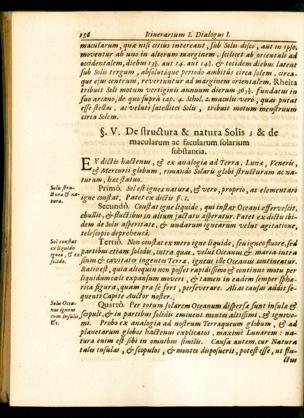 156 Itinerarium I. Dialogus I.
macularum, quæ nisi citius intereant, sub Solis disco, aut in ipso,
moventur ab uno in alterum marginem, scilicet ab orientali ad
occidentalem, diebus 13. aut 14. aut 14½. & totidem diebus latent
sub Solis tergum, absolutáque periodo ambitûs circa solem, circa-
que ejus centrum, revertuntur ad marginem orientalem. Rheita
tribuit Soli motum vertiginis annuum dierum 365½. fundatum in
suo arcano, de quo suprà cap. 4. Schol. 2. maculis verò, quas putat
esse stellas, ac veluti satellites Solis, tribuit motum menstruum
circa Solem.
§. V. De structura & natura Solis; & de
macularum ac facularum solarium
substantia.
EX dictis hactenus, & ex analogia ad Terra, Lunæ, Veneris,
& Mercurii globum, rimando Solaris globi structuram ac na-
turam, hæc statuo.
Solis stru-
ctura & na-
tura.
Primò. Sol est igneæ naturæ, & verè, propriè, ac elementari
igne constat. Patet ex dictis §. 1.
Secundò. Constat igne liquido, qui instar Oceani effervescit,
ebullit, & fluctibus in altum jactatis asperatur. Patet ex dictis ibi-
dem de Solis asperitate, & undarum ignearum velut agitatione,
telescopio deprehensis.
Sol constat
ex liquido
igneo, & ex
solido.
Tertiò. Non constat ex mero igne liquido, seu igneo fluore, sed
partibus etiam solidis, intra quas, velut Oceanus & maria intra
sinus & cavitates ingentes Terræ, igneus ille Oceanus contineatur.
Ratio est, quia alioquin non posset rapidissimo & continuo motu per
liquidum cæli expansum moveri, & tamen in eadem semper sphæ-
rica figura, quam præ se fert, perseverare. Alias causas addit se-
quenti Capite Author noster.
Solis Ocea-
nus igneus
cum insulis,
&c.
Quartò. Per totum solarem Oceanum dispersæ sunt insulæ &
scopuli, & in partibus solidis eminent montes altissimi, & ignivo-
mi. Probo ex analogia ad nostrum Terraqueum globum, & ad
planetarum globos hactenus explicatos, maximè Lunarem: na-
tura enim est sibi in omnibus similis. Causa autem, cur Natura
tales insulas, & scopulos, & montes disposuerit, potest esse, ut flu-
ctuum